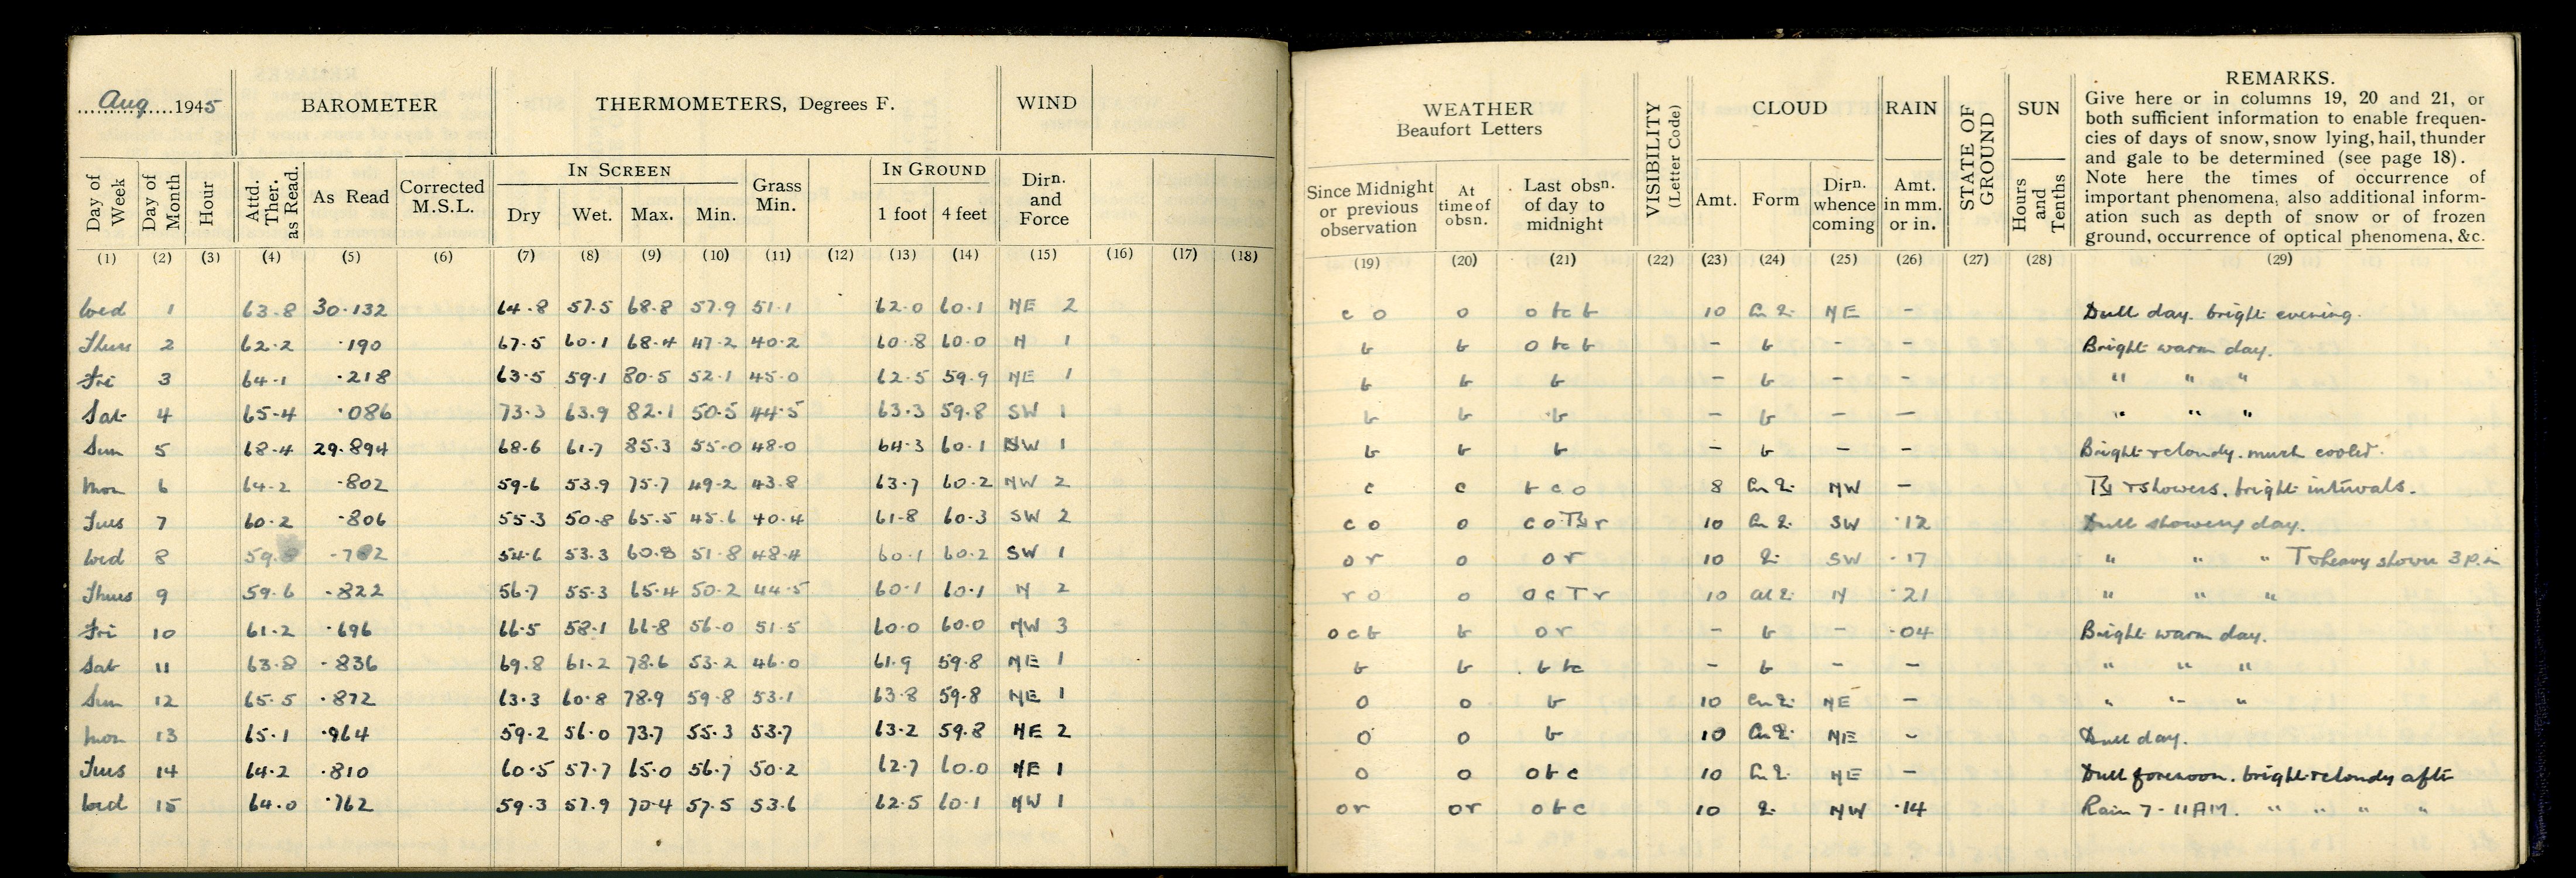 Aug 1945 BAROMETER THERMOMETERS, Degrees F. WIND
Day of Week Day of Month Hour Attd. Ther. as Read. As Read Corrected M.S.L. IN SCREEN Dry Wet. Max. Min. Grass Min. IN GROUND 1 foot 4 feet Dirn. and Force
(1) (2) (3) (4) (5) (6) (7) (8) (9) (10) (11) (12) (13) (14) (15) (16) (17) (18)
Wed 1 63.8 30.132 64.8 57.5 68.8 57.9 51.1 62.0 60.1 NE 2
Thurs 2 62.2 .190 67.5 60.1 68.4 47.2 40.2 60.8 60.0 N 1
Fri 3 64.1 .218 63.5 59.1 80.5 52.1 45.0 62.5 59.9 NE 1
Sat 4 65.4 .086 73.3 63.9 82.1 50.5 44.5 63.3 59.8 SW 1
Sun 5 68.4 29.894 68.6 61.7 85.3 55.0 48.0 64.3 60.1 NW 1
Mon 6 64.2 .802 59.6 53.9 75.7 49.2 43.8 63.7 60.2 NW 2
Tues 7 60.2 .806 55.3 50.8 65.5 45.6 40.4 61.8 60.3 SW 2
Wed 8 54.6 53.3 60.8 51.8 48.4 60.1 60.2 SW 1
Thurs 9 59.6 .822 56.7 55.3 65.4 50.2 44.5 60.1 60.1 N 2
Fri 10 61.2 .696 66.5 58.1 66.8 56.0 51.5 60.0 60.0 NW 3
Sat 11 63.8 .836 69.8 61.2 78.6 53.2 46.0 61.9 59.8 NE 1
Sun 12 65.5 .872 63.3 60.8 78.9 59.8 53.1 63.8 59.8 NE 1
Mon 13 65.1 .964 59.2 56.0 73.7 55.3 53.7 63.2 59.8 NE 2
Tues 14 64.2 .810 60.5 57.7 65.0 56.7 50.2 62.7 60.0 NE 1
Wed 15 64.0 .762 59.3 57.9 70.4 57.5 53.6 62.5 60.1 NW 1
WEATHER Beaufort Letters VISIBILITY (Letter Code) CLOUD RAIN STATE OF GROUND SUN REMARKS.
Give here or in columns 19, 20 and 21, or
both sufficient information to enable frequen-
cies of days of snow, snow lying, hail, thunder
and gale to be determined (see page 18).
Note here the times of occurrence of
important phenomena, also additional inform-
ation such as depth of snow or of frozen
ground, occurrence of optical phenomena, &c.
Since Midnight or previous observation At time of obsn. Last obsn. of day to midnight Amt. Form Dirn. whence coming Amt. in mm. or in. Hours and Tenths
(19) (20) (21) (22) (23) (24) (25) (26) (27) (28) (29)
c o o o bc b 10 NE - Dull day. bright evening.
b b o bc b - b - - Bright warm day.
b b b - b - - " " "
b b b - b - - " " "
b b b - b - - Bright & cloudy. much cooler.
c c b c o 8 NW - & showers. bright intervals.
c o o c o r 10 SW .12 Dull showery day.
o r o o r 10 SW .17 " " " T & heavy shower 3 p.m
r o o o c T r 10 N .21 " " "
o c b b o r - b - .04 Bright warm day.
b b b bc - b - - " " "
o o b 10 NE - " " "
o o b 10 NE - Dull day.
o o o b c 10 NE - Dull forenoon. bright & cloudy aft
o r o r o b c 10 NW .14 Rain 7 - 11 AM. " " " "